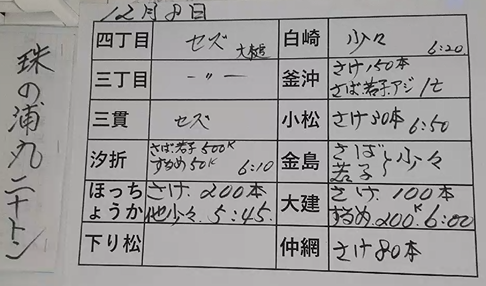 12月8日
四丁目 セズ 大建 白崎 少々 6:20
三丁目 ー〃ー 釜沖 さけ150本
さば若子アジ 1t
三貫 セズ 小松 さけ30本 6:50
汐折 さば若子500K
するめ50K 6:10 金島 さば
若子 少々
ほっちょうか さけ.200本
他少々.5:45. 大建 さけ.100本
するめ.200K 6:00
下り松 仲網 さけ80本
珠の浦丸二十トン